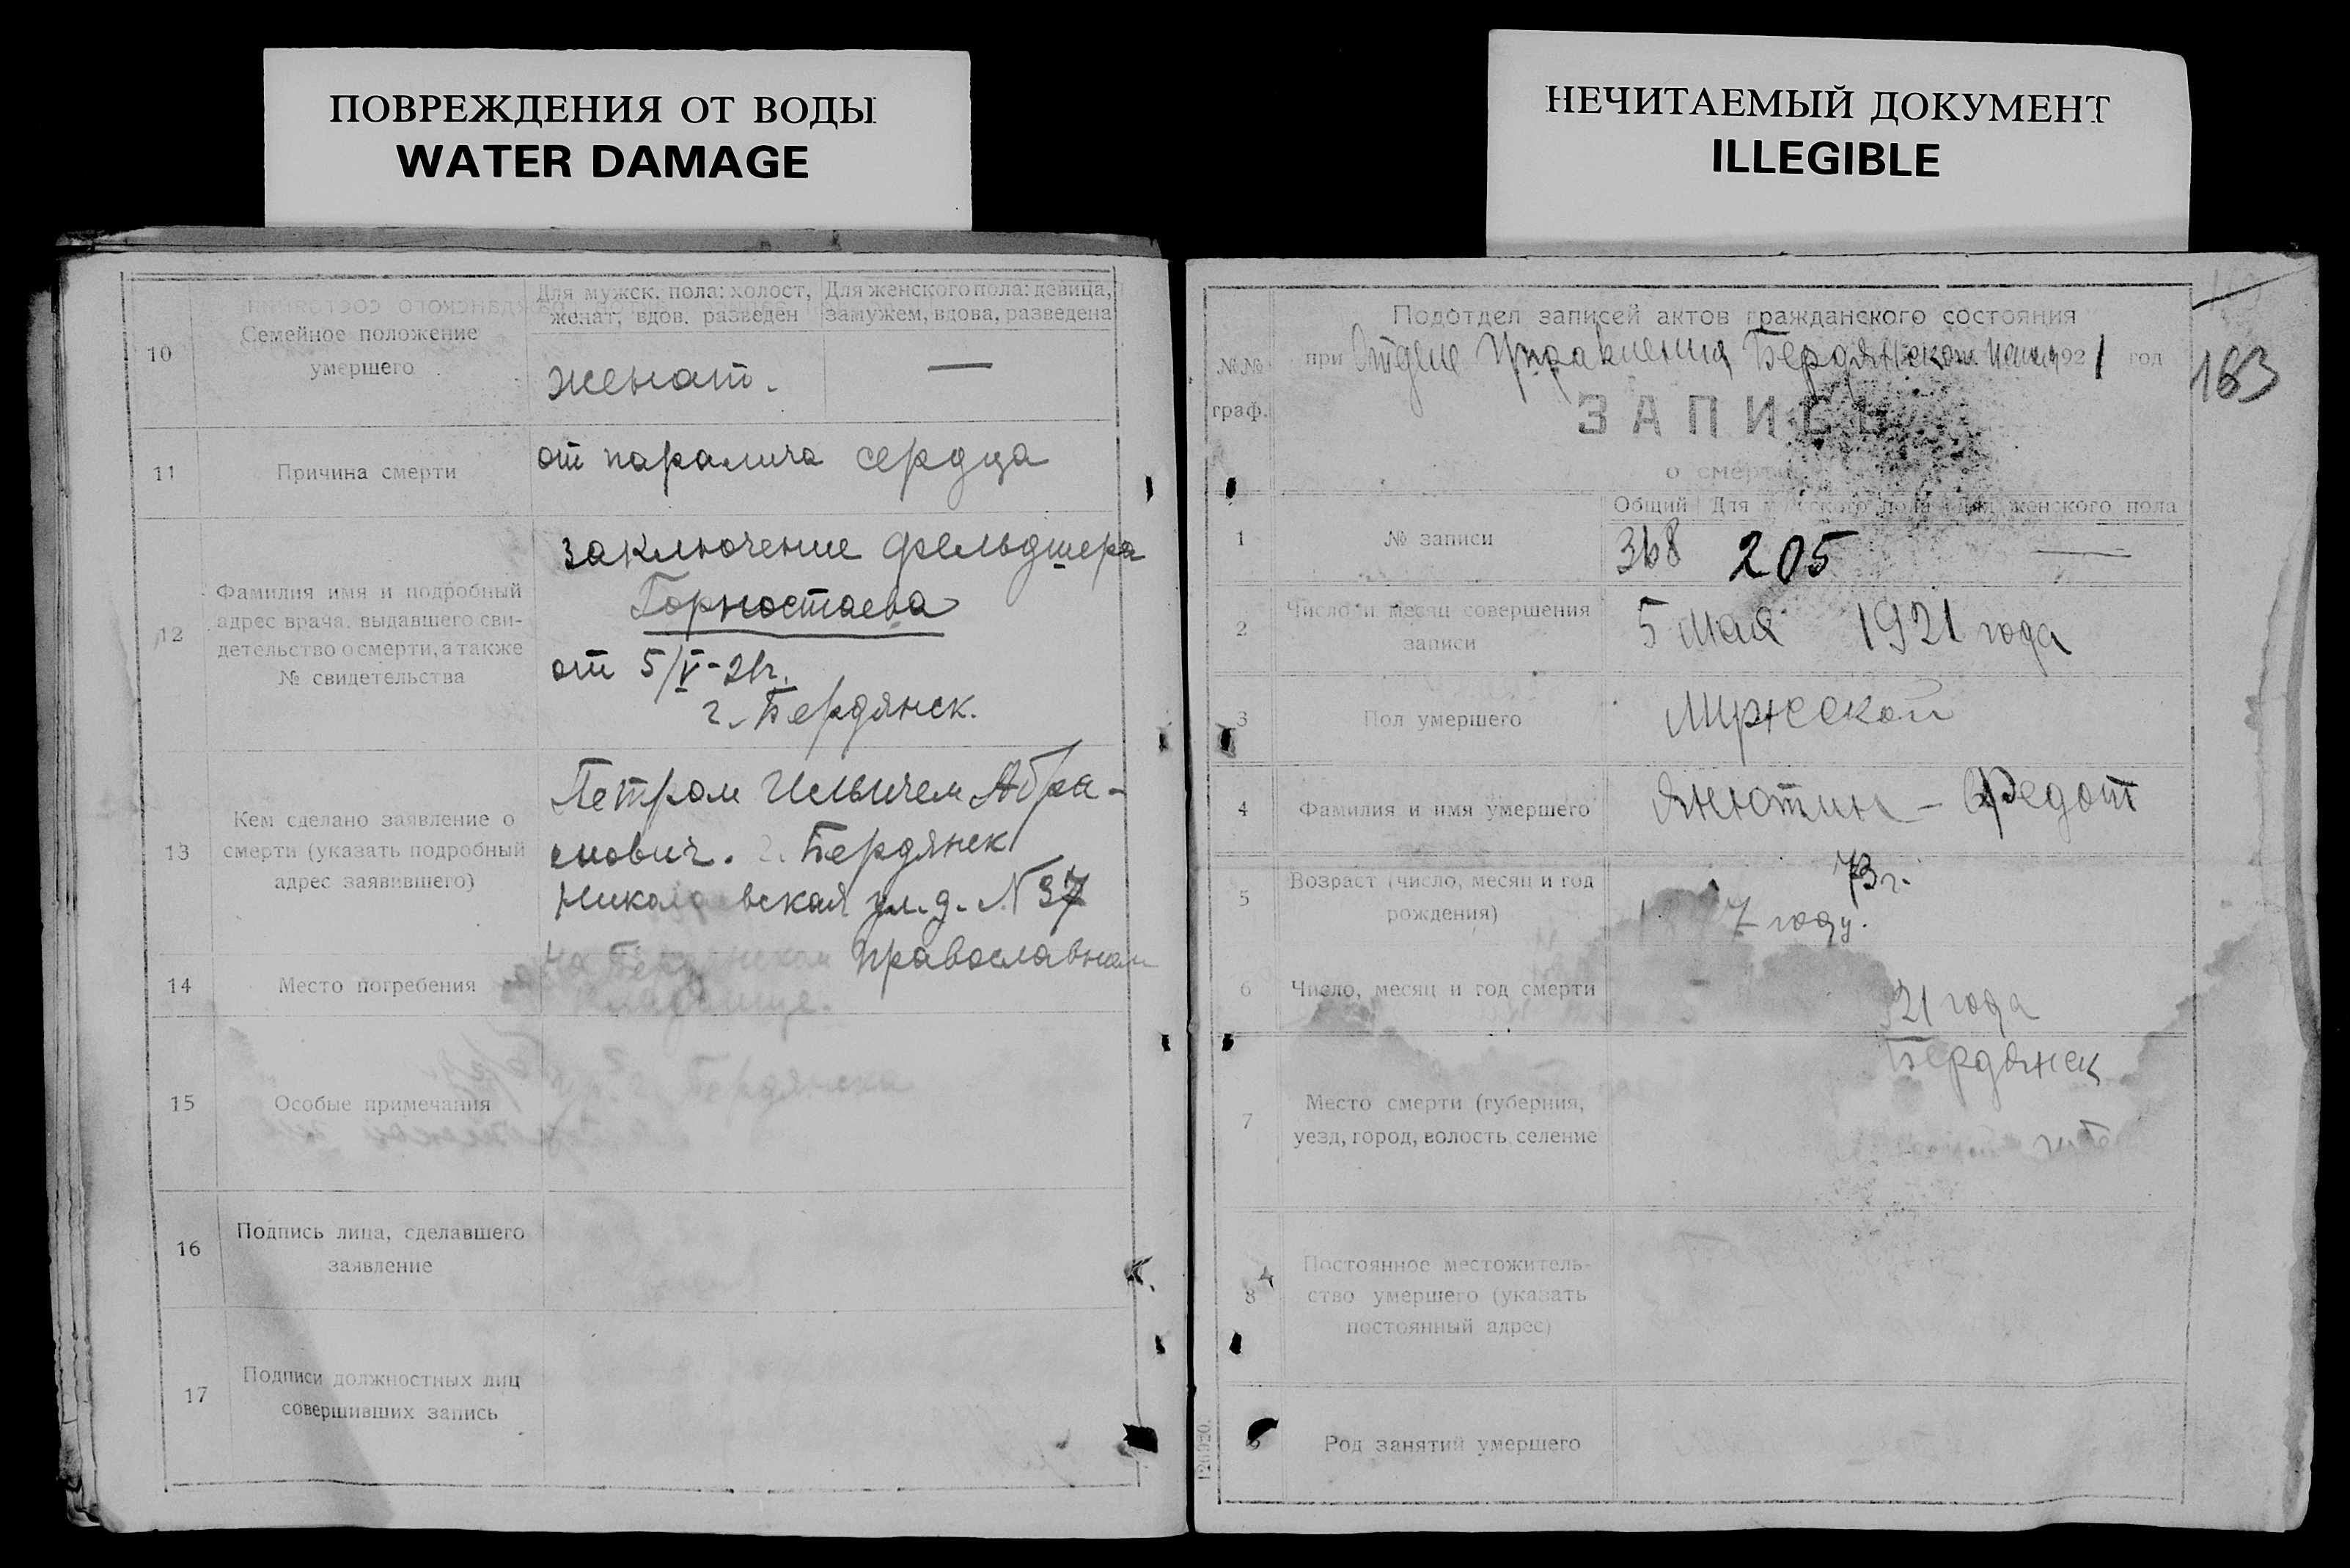 ПОВРЕЖДЕНИЯ ОТ ВОДЫ
WATER DAMAGE
НЕЧИТАЕМЫЙ ДОКУМЕНТ
ILLEGIBLE
10
Семейное положение
умершего
Для мужск. пола: холост,
женат, вдов. разведен
Для женского пола: девица,
замужем, вдова, разведена
женат. —
11
Причина смерти
от паралича сердца
12
Фамилия имя и подробный
адрес врача, выдавшего сви-
детельство о смерти, а также
№ свидетельства
заключение фельдшера
Горностаева
от 5/V-21г.
г. Бердянск.
13
Кем сделано заявление о
смерти (указать подробный
адрес заявившего)
Петром Ильичем Абра-
мович. г. Бердянск
Николаевская ул. д. № 37
14
Место погребения
на Бердянском Православном
кладбище.
15
Особые примечания
Бердянска
16
Подпись лица, сделавшего
заявление
17
Подписи должностных лиц
совершивших запись
163
№№
граф.
Подотдел записей актов гражданского состояния
при Отделе Управления Бердянском 1921 год
ЗАПИСЬ
о смерти
1
№ записи
Общий Для мужского пола Для женского пола
368 205 —
2
Число и месяц совершения
записи
5 мая 1921 года
3
Пол умершего
Мужской
4
Фамилия и имя умершего
Янютин - Федот
5
Возраст (число, месяц и год
рождения)
73 г.
7 году.
6
Число, месяц и год смерти
21 года
7
Место смерти (губерния,
уезд, город, волость, селение
Бердянск
губ
8
Постоянное местожитель-
ство умершего (указать
постоянный адрес)
Род занятий умершего